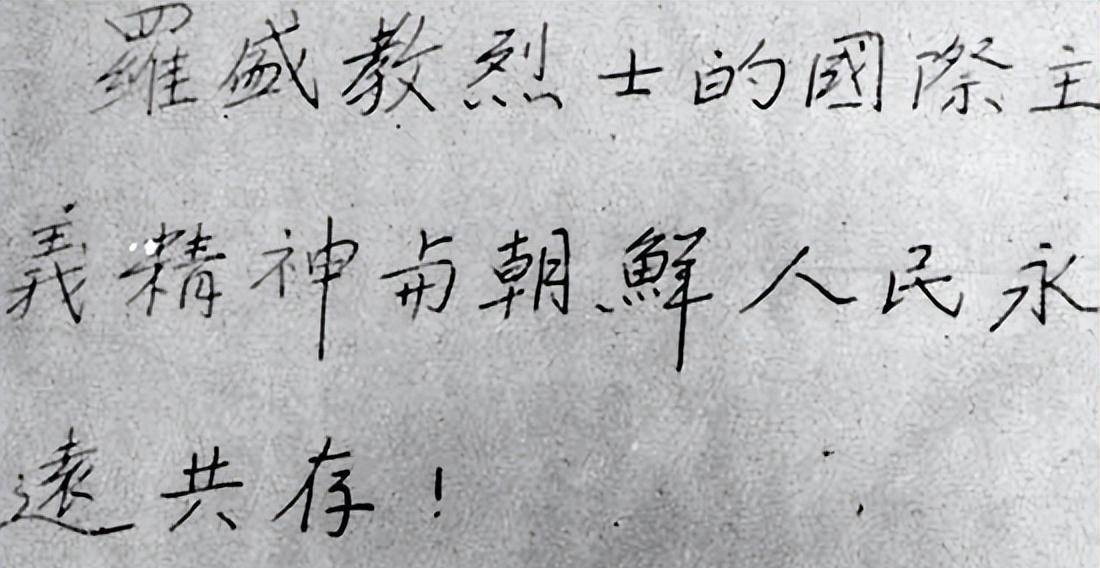 羅盛教烈士的國際主
義精神与朝鮮人民永
遠共存！